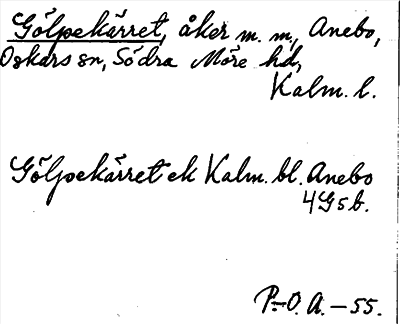 Gölpekärret, åker m. m., Anebo,
Oskars sn, Södra Möre hd,
Kalm. l.
Gölpekärret ek Kalm. bl. Anebo
4G5b.
P.-O. A. - 55.